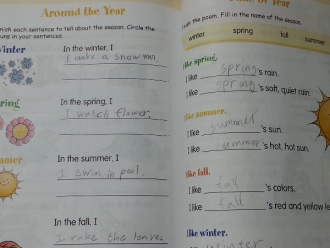 Around the Year
nish each sentence to tell about the season. Circle the
uns in your sentences.
inter
In the winter, I
I make a snow man
ring
In the spring, I
I watch flower.
mer
In the summer, I
I swim in pool.
In the fall, I
I rake the leaves
of Year
the poem. Fill in the name of the season.
winter spring fall summer
like spring.
I like spring's rain.
I like spring's soft, quiet rain.
like summer.
I like summer's sun.
I like summer's hot, hot sun.
like fall.
I like fall's colors.
I like fall's red and yellow le
like winter.
winter